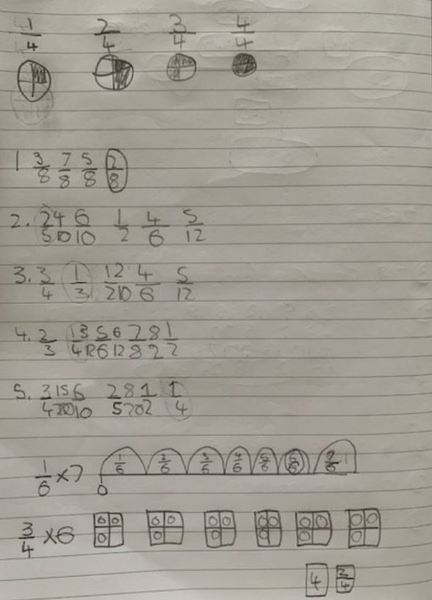 1/4 2/4 3/4 4/4
1 3/8 7/8 5/8 2/8
2. 2/5 4/10 6/10 1/2 4/6 5/12
3. 3/4 1/3 12/20 4/6 5/12
4. 2/3 1/4 3/12 5/6 6/12 7/8 8/2 1/2
5. 3/4 6/10 2/5 8/20 1/2 1/4
1/6 ×7 1/6 2/6 3/6 4/6 5/6
0
3/4 ×6
4 2/4